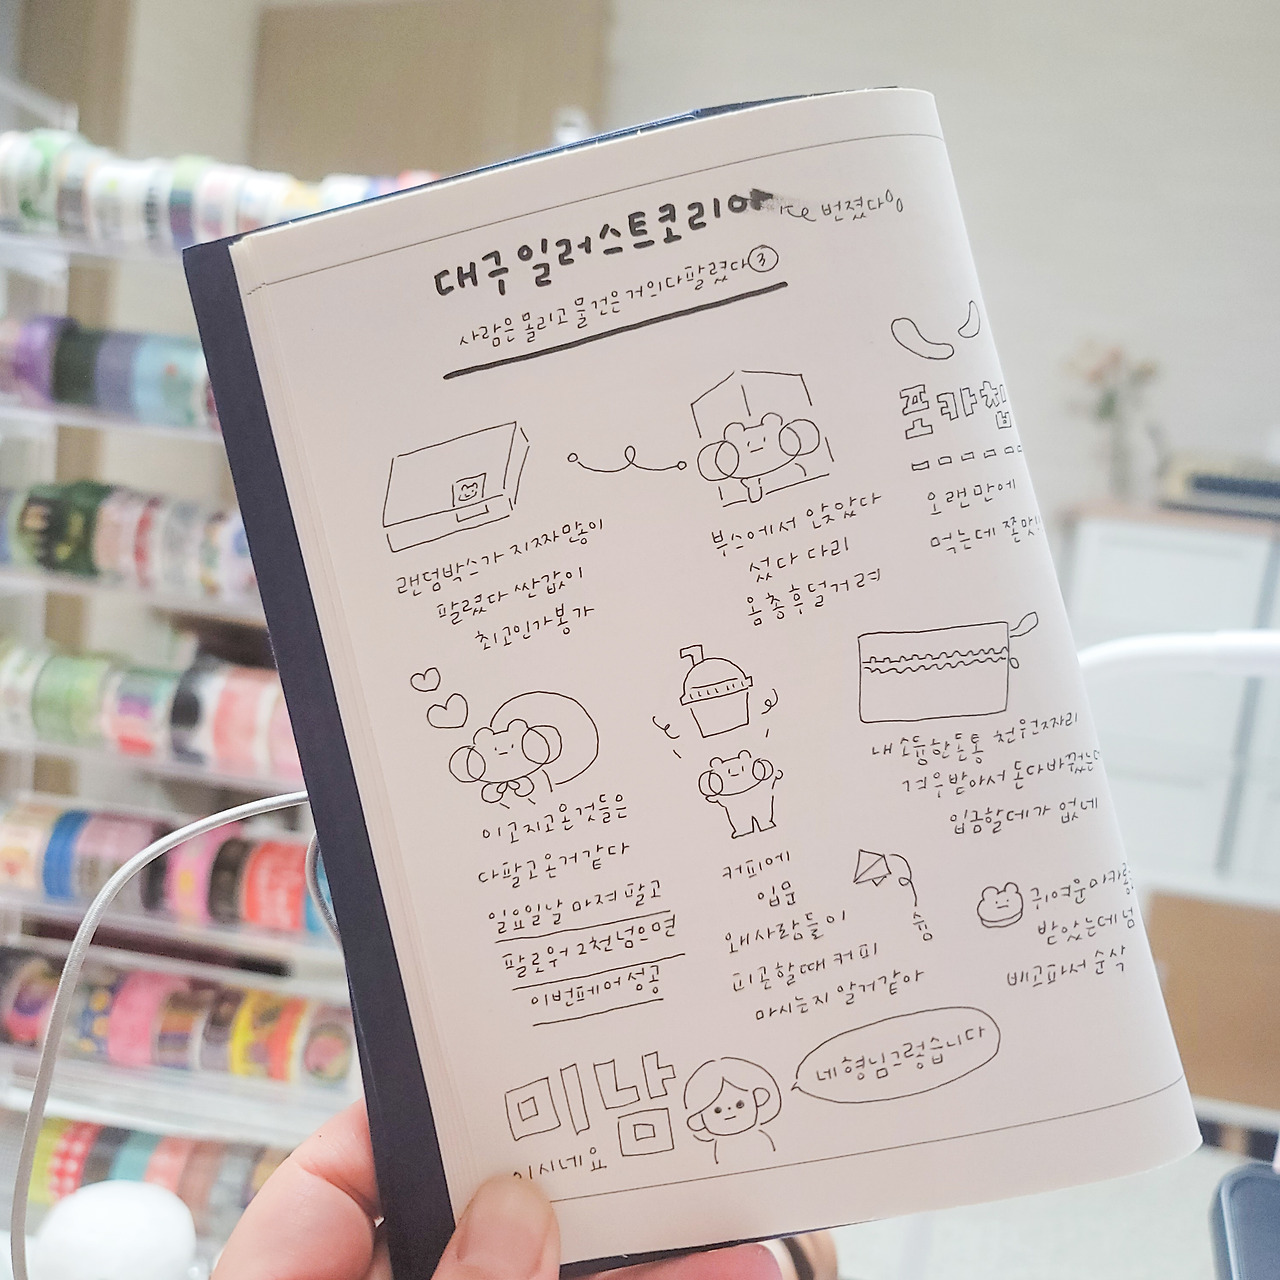 대구일러스트코리아 번졌다
사람은 몰리고 물건은 거의다팔렸다 ③
랜덤박스가 지짜많이
팔렸다 싼값이
최고인가봉가
부스에서 앉았다
섰다 다리
음총후덜거려
포카칩
오랜만에
먹는데 쫀맛!!
이고지고온것들은
다팔고온거같다
일요일날 마져 팔고
팔로워 2천넘으면
이번페어 성공
커피에
입문
왜사람들이
피곤할때 커피
마시는지 알거같아
슝
내소듕한돈통 천원짜리
겨우받아서 돈다바꿨는데
입금할데가 없네
귀여운마카롱
받았는데 넘
배고파서 순삭
미남
이시네요
네형님그렇습니다